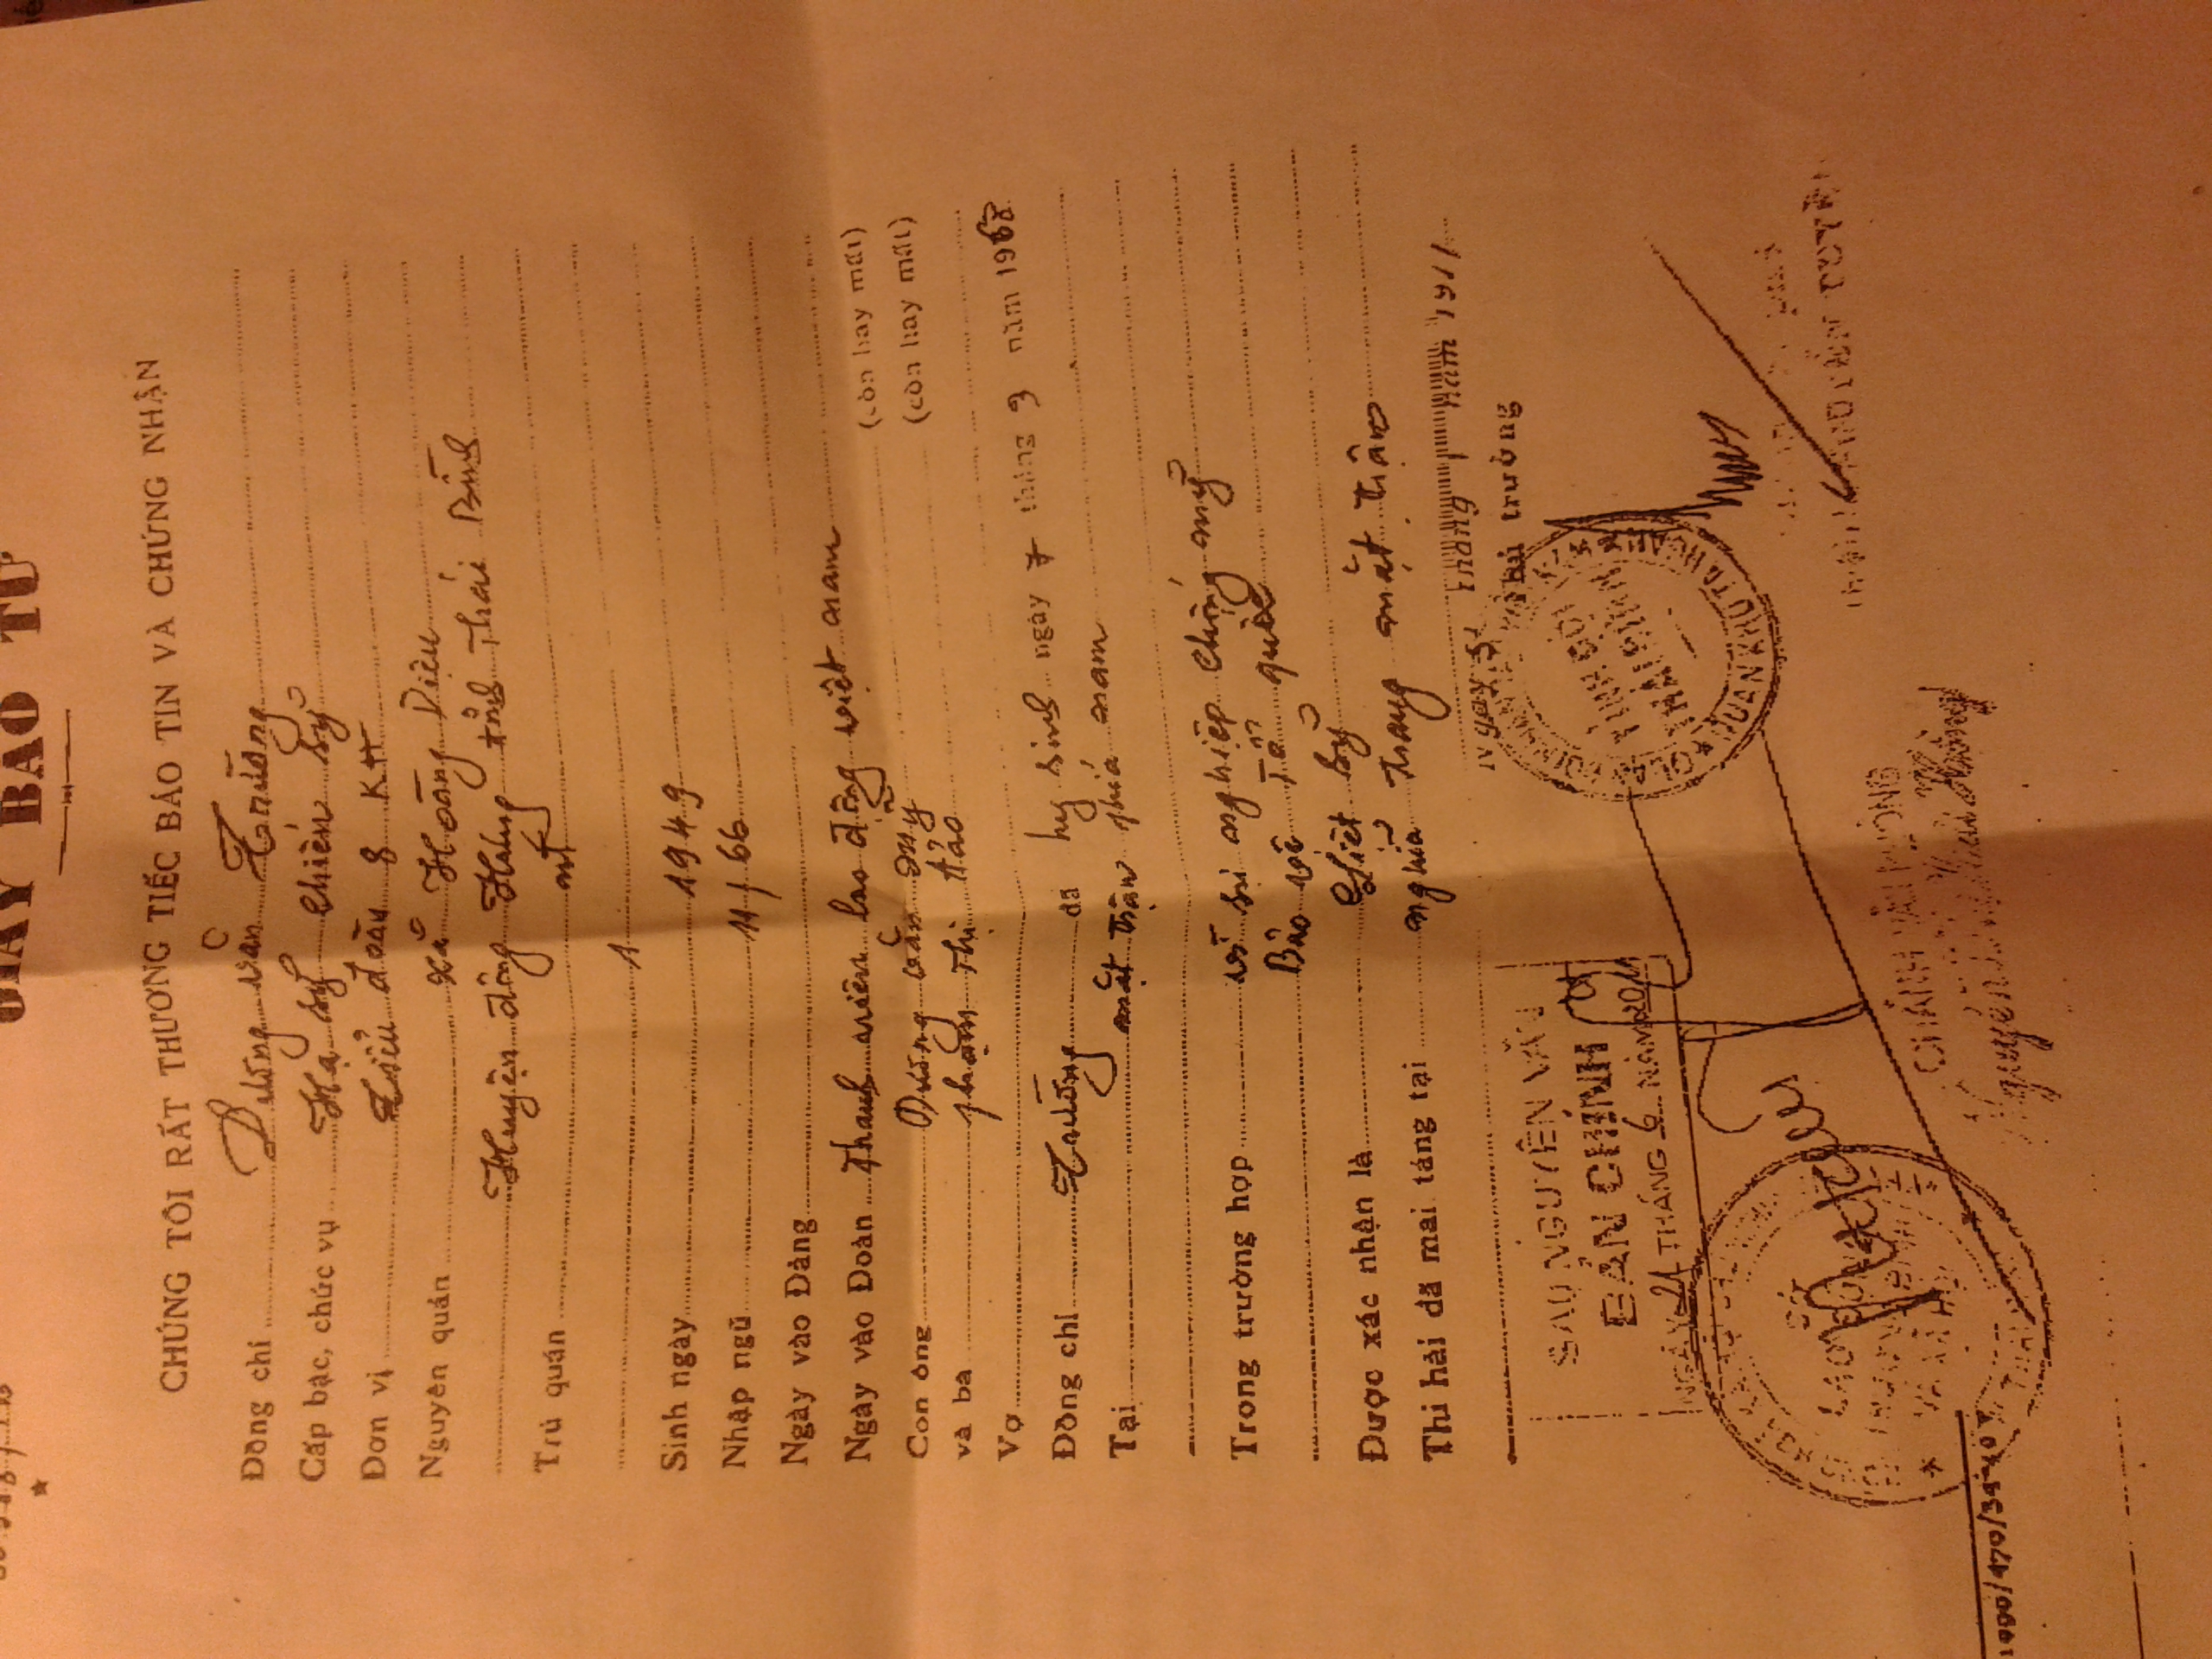 GIẤY BÁO TỬ
CHÚNG TÔI RẤT THƯƠNG TIẾC BÁO TIN VÀ CHỨNG NHẬN
Đồng chí Dương văn Trường
Cấp bạc, chức vụ Hạ sỹ chiến sỹ
Đơn vị Tiểu đoàn 8 KH
Nguyên quán xã Hoàng Diệu
Huyện đông Hưng tỉnh Thái Bình
Trú quán nt
Sinh ngày 1949
Nhập ngũ 11/66
Ngày vào Đảng
Ngày vào Đoàn Thanh niên lao động việt nam
Con ông Dương văn (còn hay mất)
và bà phạm Thị (còn hay mất)
Vợ
Đồng chí Trường đã hy sinh ngày 7 tháng 9 năm 1968
Tại mặt trận phía nam
Trong trường hợp vì sự nghiệp chống mỹ
Bảo vệ Tổ quốc
Được xác nhận là Liệt sỹ
Thi hài đã mai táng tại nghĩa trang mặt trận
Ngày tháng năm
trưởng
SAO NGUYÊN VĂN
BẢN CHÍNH
NGÀY 21 THÁNG 6 NĂM 2011
TỈNH ĐỘI
THÁI BÌNH
QUÂN KHU TẢ NGẠN
SỞ
LAO ĐỘNG
THƯƠNG BINH
VÀ XÃ HỘI
CHÁNH VĂN PHÒNG